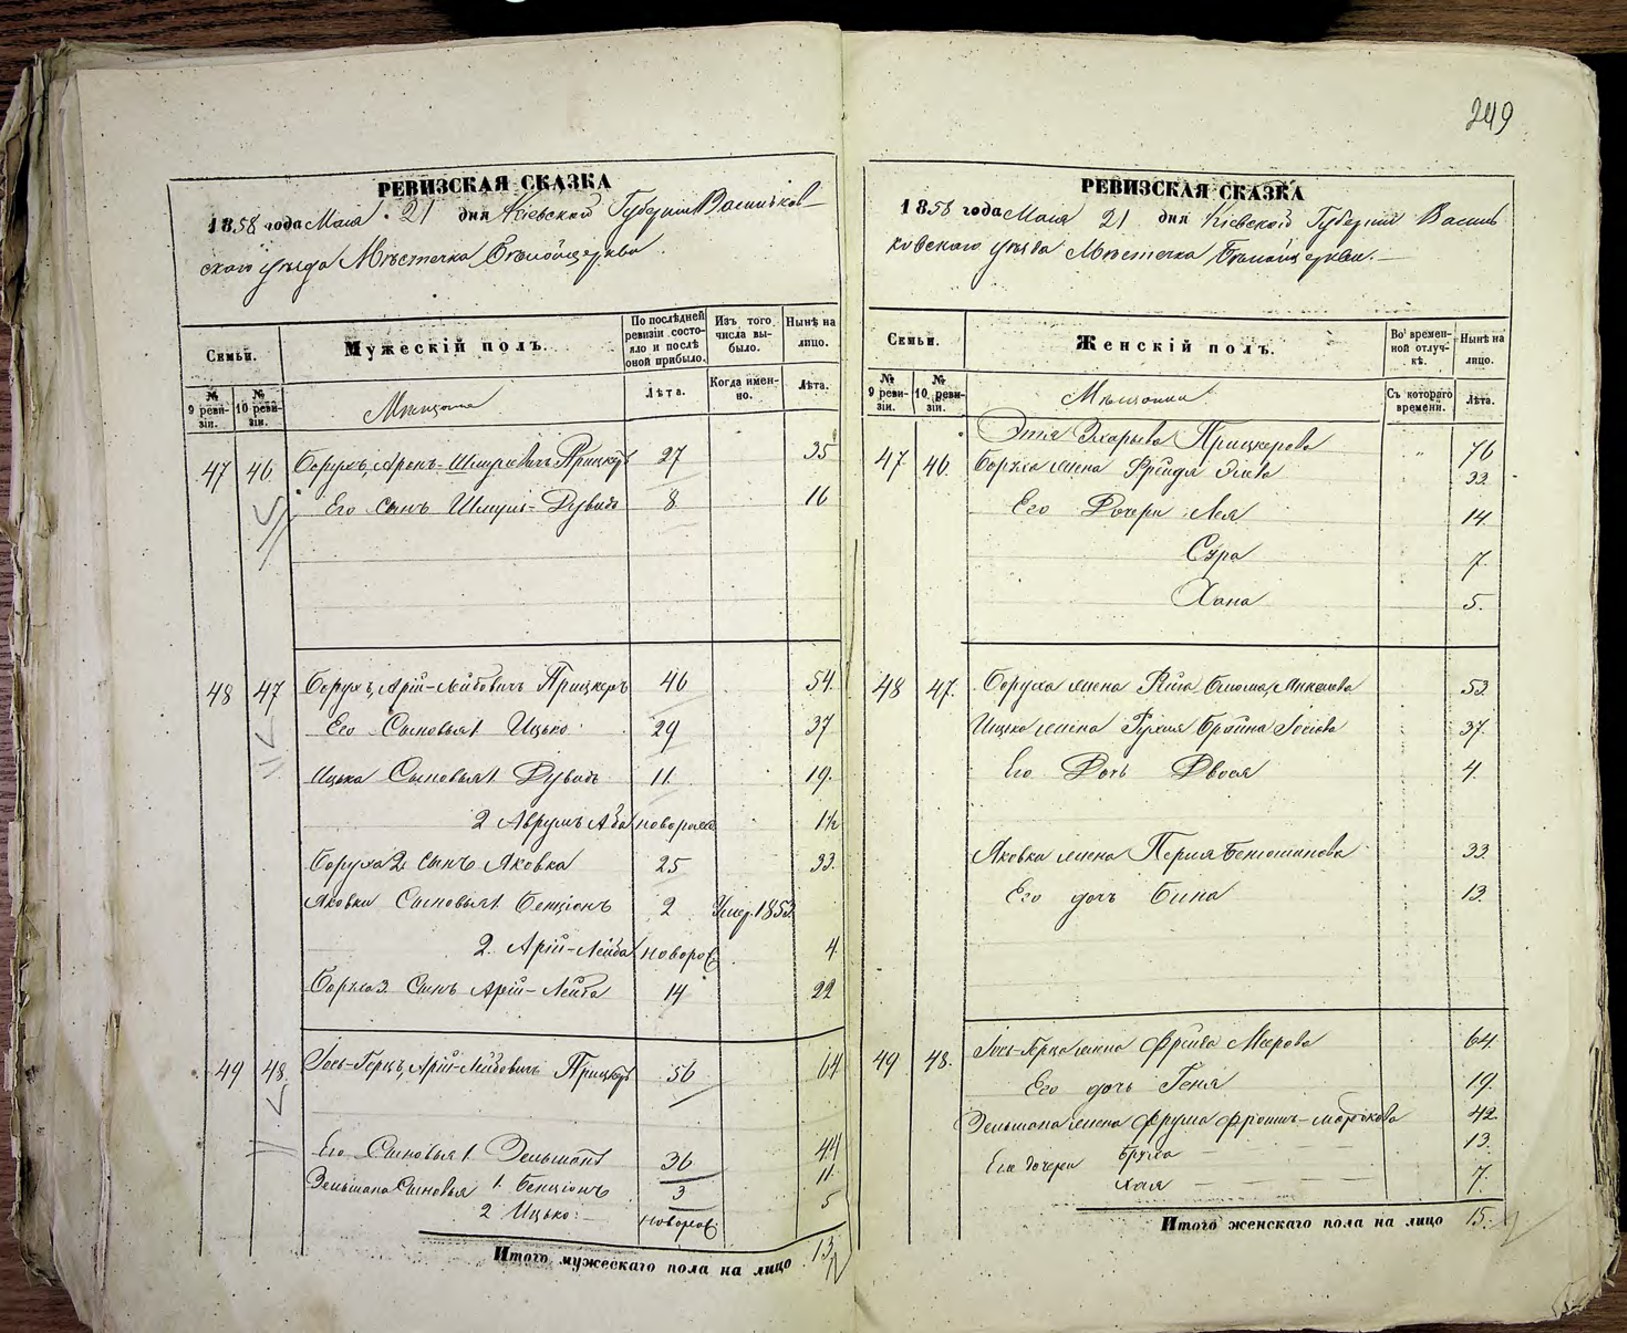 249
РЕВИЗСКАЯ СКАЗКА
1858 года Мая 21 дня Кіевской Губерніи Васильков-
скаго уѣзда Мѣстечка Бѣлойцеркви
Семьи.
Мужескій полъ.
По послѣдней ревизіи состояло и послѣ оной прибыло.
Изъ того числа выбыло.
Нынѣ на лицо.
№ 9 ревизіи.
№ 10 ревизіи.
Мѣщане
Лѣта.
Когда именно.
Лѣта.
47 46 Борухъ, Аронъ-Шмулевичъ Прицкеръ 27 35
Его сынъ Шмуль-Дувидъ 8 16
48 47 Борухъ, Арій-Лейбовичъ Прицкеръ 46 54.
Его Сыновья 1. Ицько 29 37
Ицька Сыновья 1. Дувидъ 11. 19.
2 Аврумъ Аба новорожд 1½
Боруха 2. сынъ Яковка 25 33.
Яковки Сыновья 1. Бенціонъ 2 Умер. 1853
2. Арій-Лейба новорож 4.
Боруха 3. Сынъ Арій-Лейба 14 22
49 48. Іось-Герцъ, Арій-Лейбовичъ Прицкеръ 56 64
Его Сыновья 1. Зельманъ 36 44
Зельмана Сыновья 1. Бенціонъ 3 11.
2 Ицько новорож 5
Итого мужескаго пола на лицо 13
РЕВИЗСКАЯ СКАЗКА
1858 года Мая 21 дня Кіевской Губерніи Василь
ковскаго уѣзда Мѣстечка Бѣлойцеркви.
Семьи.
Женскій полъ.
Во времен-ной отлучкѣ.
Нынѣ на лицо.
№ 9 ревизіи.
№ 10 ревизіи.
Мѣщанки
Съ котораго времени.
Лѣта.
Этя Прицкерова 76
47 46. Боруха жена Фрейда 33.
Его Дочери Лея 14.
Сура 7.
Хана 5.
48 47. Боруха жена 53
Ицька жена Рухля Бройна 37.
Его Дочь Двося 4.
Яковка жена Перля 33
Его дочь Бина 13.
49 48. Іось-Герца жена Фрейда Меерова 64.
Его дочь Геня 19.
Зельмана жена Фрума 42.
Его дочери Бруха 13.
Хая 7.
Итого женскаго пола на лицо 15.